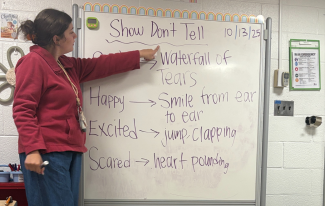 Show Don't Tell 10/13/25
→ Waterfall of
Tears
Happy → Smile from ear
to ear
Excited → jump. clapping
Scared → heart pounding